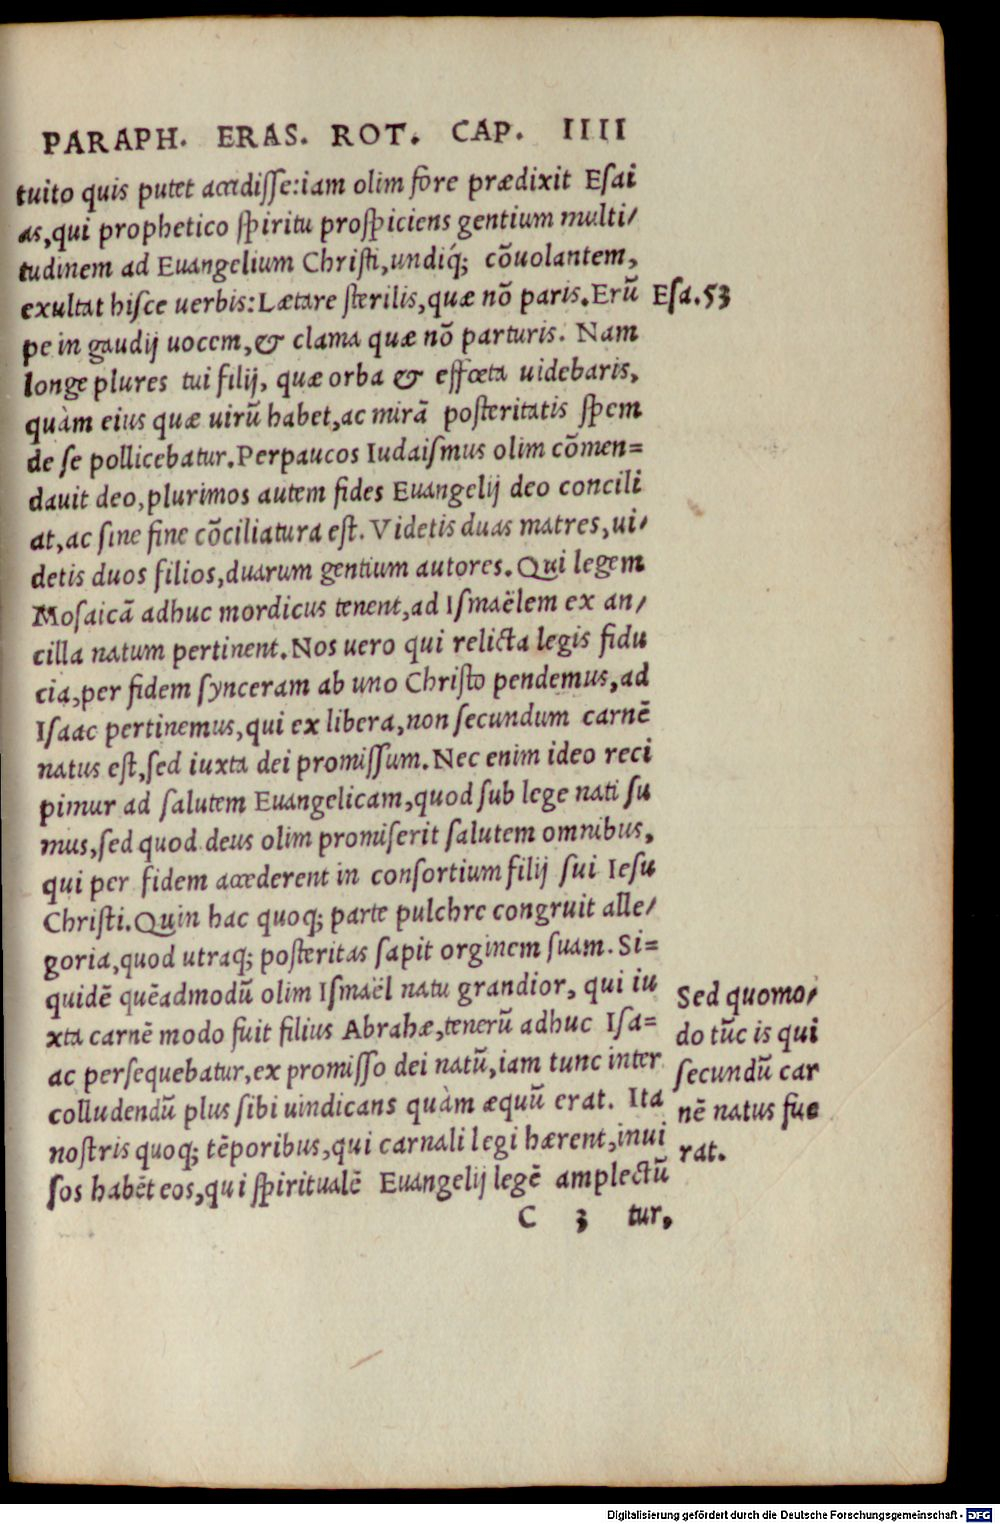 PARAPH. ERAS. ROT. CAP. IIII
tuito quis putet accidiſſe:iam olim fore prædixit Eſai
as,qui prophetico ſpiritu proſpiciens gentium multi/
tudinem ad Euangelium Chriſti,undiq́; cõuolantem,
exultat hiſce uerbis:Lætare ſterilis,quæ nõ paris.Erũ
pe in gaudij uocem,& clama quæ nõ parturis. Nam
longe plures tui filij, quæ orba & effœta uidebaris,
quàm eius quæ uirũ habet,ac mirã poſteritatis ſpem
de ſe pollicebatur.Perpaucos Iudaiſmus olim cõmen=
dauit deo,plurimos autem fides Euangelij deo concili
at,ac ſine fine cõciliatura eſt. Videtis duas matres,ui/
detis duos filios,duarum gentium autores.Qui legem
Moſaicã adhuc mordicus tenent,ad Iſmaëlem ex an/
cilla natum pertinent.Nos uero qui relicta legis fidu
cia,per fidem ſynceram ab uno Chriſto pendemus,ad
Iſaac pertinemus,qui ex libera,non ſecundum carnẽ
natus eſt,ſed iuxta dei promiſſum.Nec enim ideo reci
pimur ad ſalutem Euangelicam,quod ſub lege nati ſu
mus,ſed quod deus olim promiſerit ſalutem omnibus,
qui per fidem accederent in conſortium filij ſui Ieſu
Chriſti.Quin hac quoq; parte pulchre congruit alle/
goria,quod utraq; poſteritas ſapit orginem ſuam. Si=
quidẽ quẽadmodũ olim Iſmaël natu grandior, qui iu
xta carnẽ modo fuit filius Abrahæ,tenerũ adhuc Iſa=
ac perſequebatur,ex promiſſo dei natũ,iam tunc inter
colludendũ plus ſibi uindicans quàm æquũ erat. Ita
noſtris quoq; tẽporibus,qui carnali legi hærent,inui
ſos habẽt eos,qui ſpiritualẽ Euangelij legẽ amplectũ
C 3 tur,
Eſa.53
Sed quomo/
do tũc is qui
ſecundũ car
nẽ natus fue
rat.
Digitalisierung gefördert durch die Deutsche Forschungsgemeinschaft - DFG